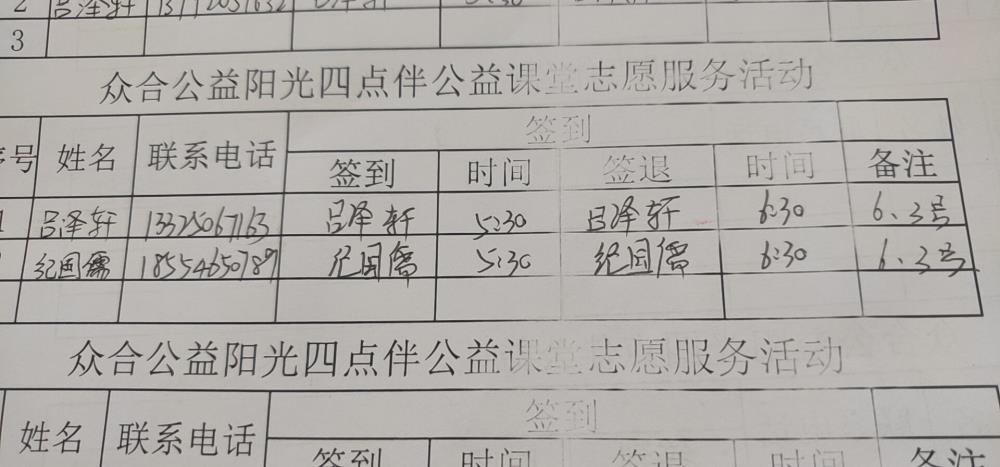 2 吕泽轩
3
众合公益阳光四点伴公益课堂志愿服务活动
序号 姓名 联系电话 签到
签到 时间 签退 时间 备注
1 吕泽轩 13325067163 吕泽轩 5:30 吕泽轩 6:30 6.3号
纪国儒 18554650789 纪国儒 5:30 纪国儒 6:30 6.3号
众合公益阳光四点伴公益课堂志愿服务活动
姓名 联系电话 签到
签到 时间 签退 时间 备注